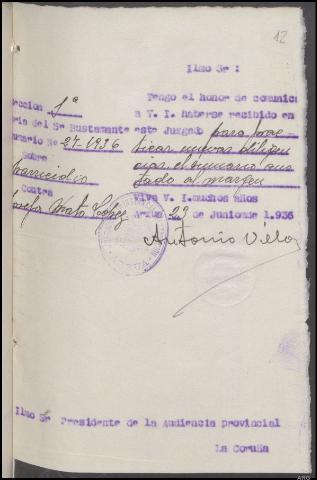 12
Ilmo Sr :
Tengo el honor de comunica
a V. I. haberse recibido en
este Juzgado para prac-
ticar nuevas diligen
cias el sumario ano
tado al margen
Viva V. I. muchos años
Arzua 23 de Junio de 1.936
Antonio Vila
cción 1ª
ria del Sr Bustamante
umario Nº 27-1936
Sobre
parricidio
Contra
Josefa Mato López
ARZUA
Ilmo Sr Presidente de la Audiencia provincial
La Coruña